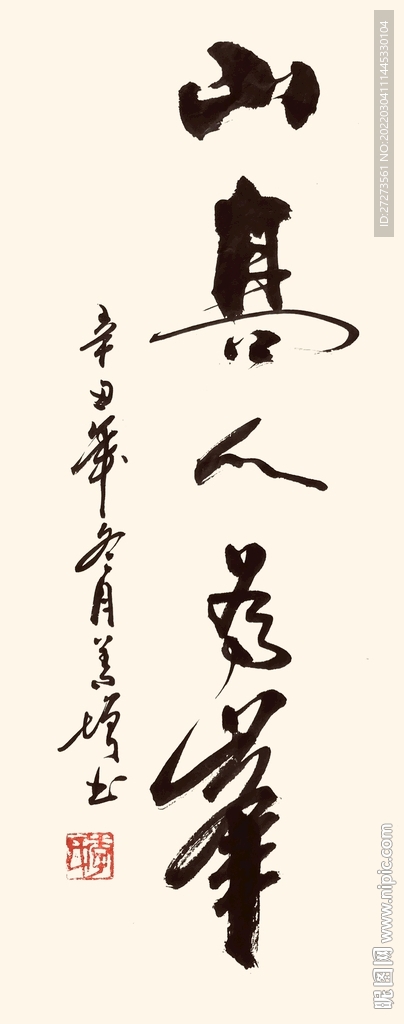 山高人为峰
辛丑年冬月善增书
ID:27273561 NO:20220304111445330104
昵图网 www.nipic.com